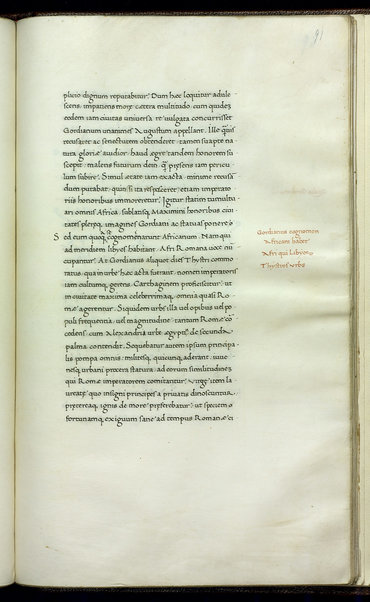 91
plicio dignum reputabitur. Dum hæc loquitur adule
scens, impatiens moræ cætera multitudo cum quidẽ
eodem iam ciuitas uniuersa re uulgata concurrisset
Gordianum unanimes Augustum appellant. Ille q̃uis
recusaret ac senectutem obtenderet tamen suapte na
tura gloriæ auidior haud ægre tandem honorem su
scepit malens futurum deinde q̃ præsens iam pericu
lum subire. Simul ætate iam exacta minime recusa
dum putabat quin si ita res posceret etiam imperato
riis honoribus immoreretur. Igitur statim tumultu
ari omnis Africa, sublatisq; Maximini honoribus ciui
tates pleræq; imagines Gordiani ac statuas ponere
Sed eum quoq; cognominantur Africanum. Nam qui
ad meridiem libyes habitant Afri Romana uoce nũ
cupantur. At Gordianus aliquot dies Thystri commo
ratus qua in urbe hæc acta fuerant nomen imperatoris
iam cultumq; gerens, Carthaginem proficiscitur ut
in ciuitate maxima celeberrimaq; omnia quasi Ro
mæ agerentur. Siquidem urbs illa uel opibus uel po
puli frequentia uel magnitudine tantum Romæ cõ
cedens cum Alexandria urbe ægypti de secunda
palma contendit. Sequebatur autem ipsum principa
lis pompa omnis militesq; quicunq; aderant iuue
nesq; urbani procera statura ad eorum similitudinem
qui Romæ imperatorem comitantur. Virgæ item la
ureatæ quo insigni principes a priuatis dinoscuntur
prætereaq; ignis de more præferebatur ut speciem
fortunamq; exiguum sane ad tempus Romanæ ci
Gordianus cognomen
Africani habet
Afri qui Libyes
Thystrus urbs